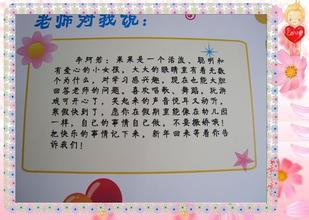 老师对我说:
李珂若:果果是一个活泼、聪明和
有爱心的小女孩,大大的眼睛里有着无数
个为什么,对学习感兴趣,现在也能大胆
回答老师的问题,喜欢唱歌、舞蹈,玩游
戏可开心了,笑起来的声音悦耳又动听,
寒假快到了,愿你在假期里能像在幼儿园
一样,自己的事情自己做,不要撒娇哦!
把快乐的事情记下来,新年回来等着你告
诉我们!
Love